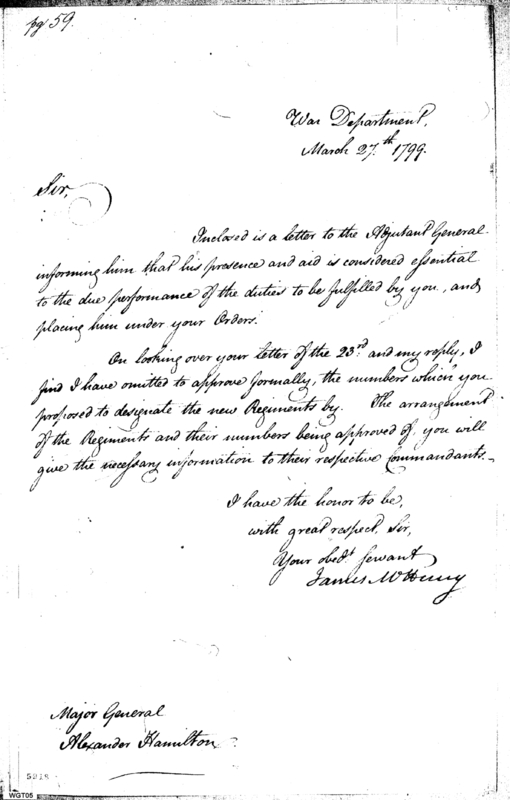 pg 59.
War Department,
March 27.th 1799.
Sir,
Inclosed is a letter to the Adjutant General
informing him that his presence and aid is considered essential
to the due performance of the duties to be fulfilled by you, and
placing him under your Orders.
On looking over your letter of the 23rd and my reply, I
find I have omitted to approve formally, the numbers which you
proposed to designate the new Regiments by. The arrangement
of the Regiments and their numbers being approved of, you will
give the necessary information to their respective Commandants.
I have the honor to be,
with great respect, Sir,
Your obedt. servant
James McHenry
Major General
Alexander Hamilton
WGT05